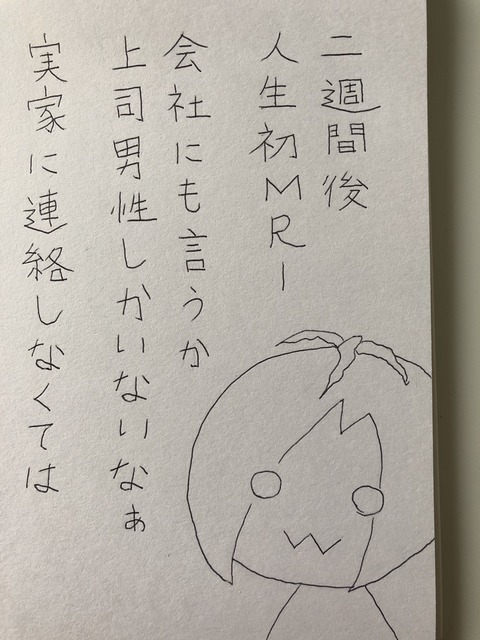 二週間後
人生初MRI
会社にも言うか
上司男性しかいないなぁ
実家に連絡しなくては